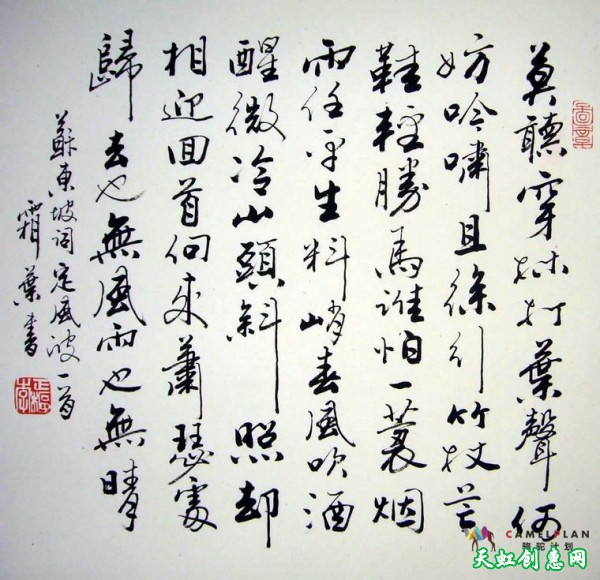 莫聽穿林打葉聲何
妨吟嘯且徐行竹杖芒
鞋輕勝馬誰怕一蓑烟
雨任平生料峭春風吹酒
醒微冷山頭斜照却
相迎回首向來蕭瑟處
歸去也無風雨也無晴
蘇東坡詞定風波一首
霜葉書
CAMEL PLAN
骆驼计划
天虹创惠网